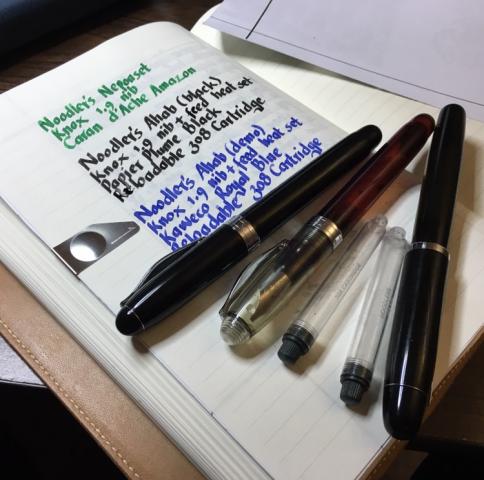 Noodler's Neponset
Knox 1.9 nib
Caran d'Ache Amazon
Noodler's Ahab (black)
Knox 1.9 nib + feed heat set
Papier Plume Black
Reloadable 308 Cartridge
Noodler's Ahab (demo)
Knox 1.9 nib + feed heat set
Kaweco Royal Blue
Reloadable 308 Cartridge